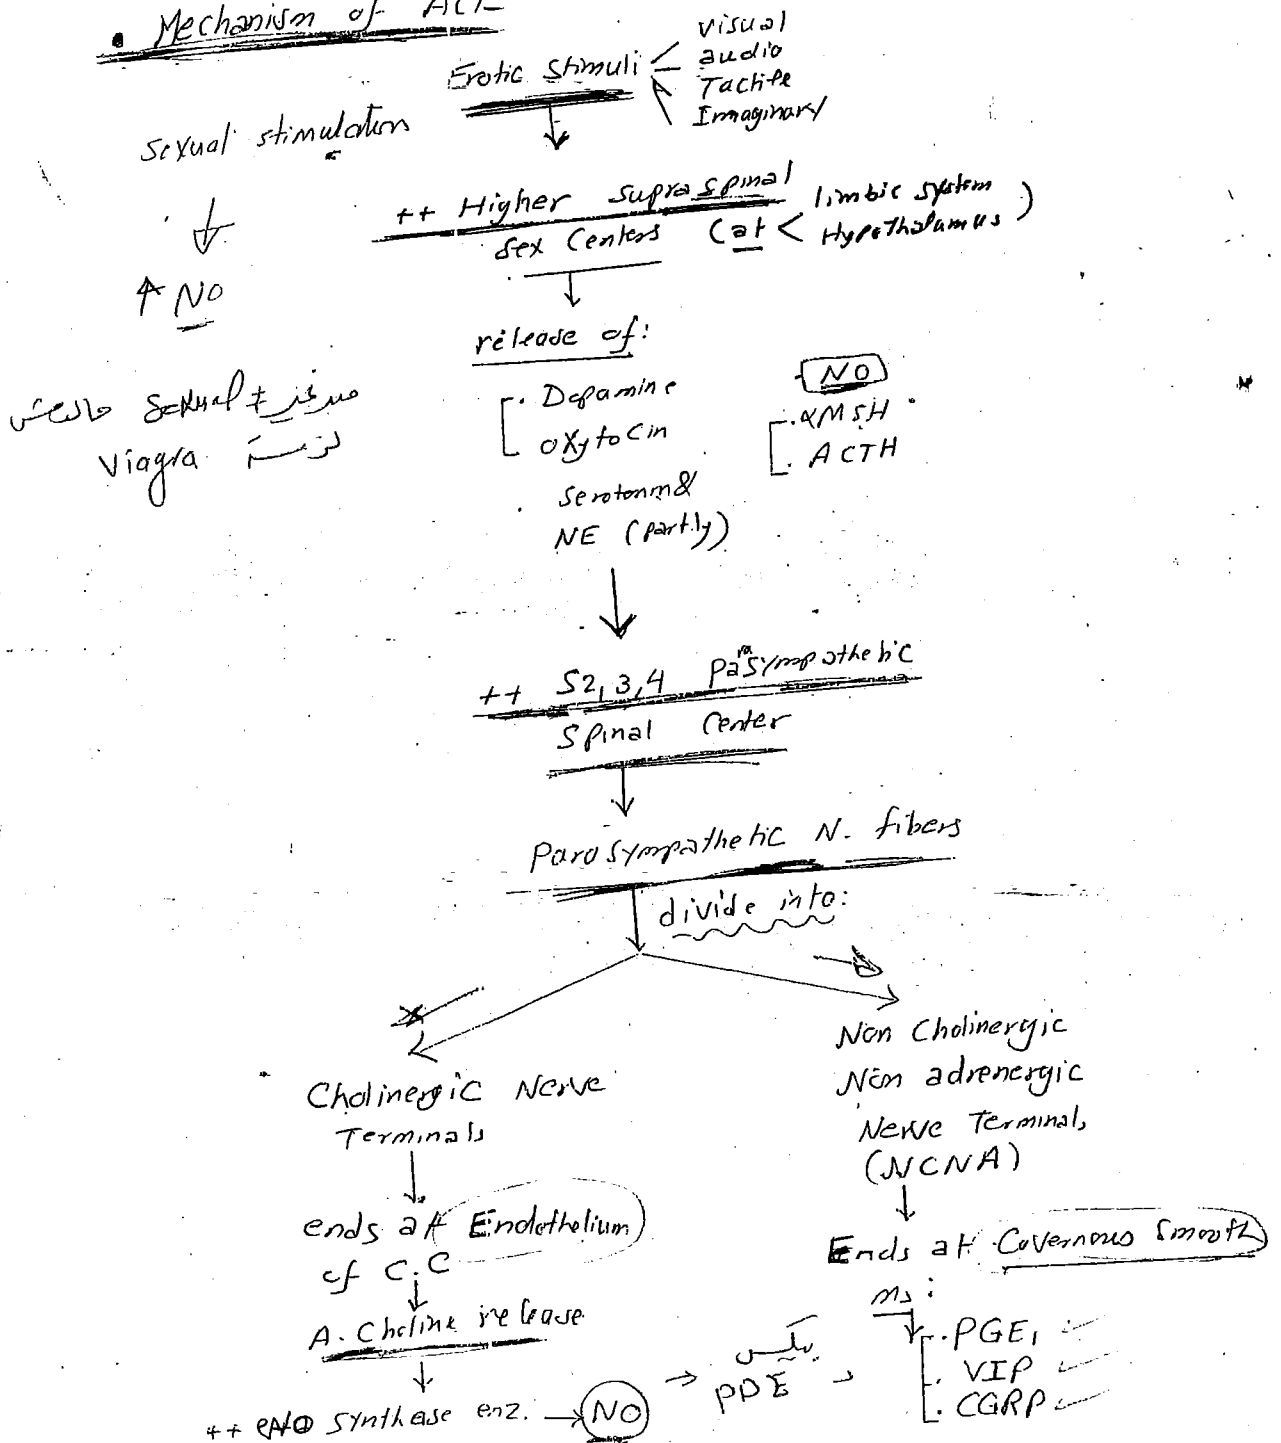 • Mechanism of
Erotic stimuli
visual
audio
Tactile
Imaginary
sexual stimulation
↑ NO
++ Higher supraspinal
sex Centers (at < limbic system
Hypothalamus)
release of:
• Dopamine
oxytocin
serotonin &
NE (partly)
NO
• αMSH
• ACTH
sexual ≠ من غير
Viagra
++ S2,3,4 Parasympathetic
Spinal Center
Parasympathetic N. fibers
divide into:
Cholinergic Nerve
Terminals
ends at Endothelium
of C.C
A. Choline release
++ eNO synthase enz. → NO
→ PDE
Non Cholinergic
Non adrenergic
Nerve Terminals
(NCNA)
Ends at Covernous Smooth
ms:
• PGE1
• VIP
• CGRP